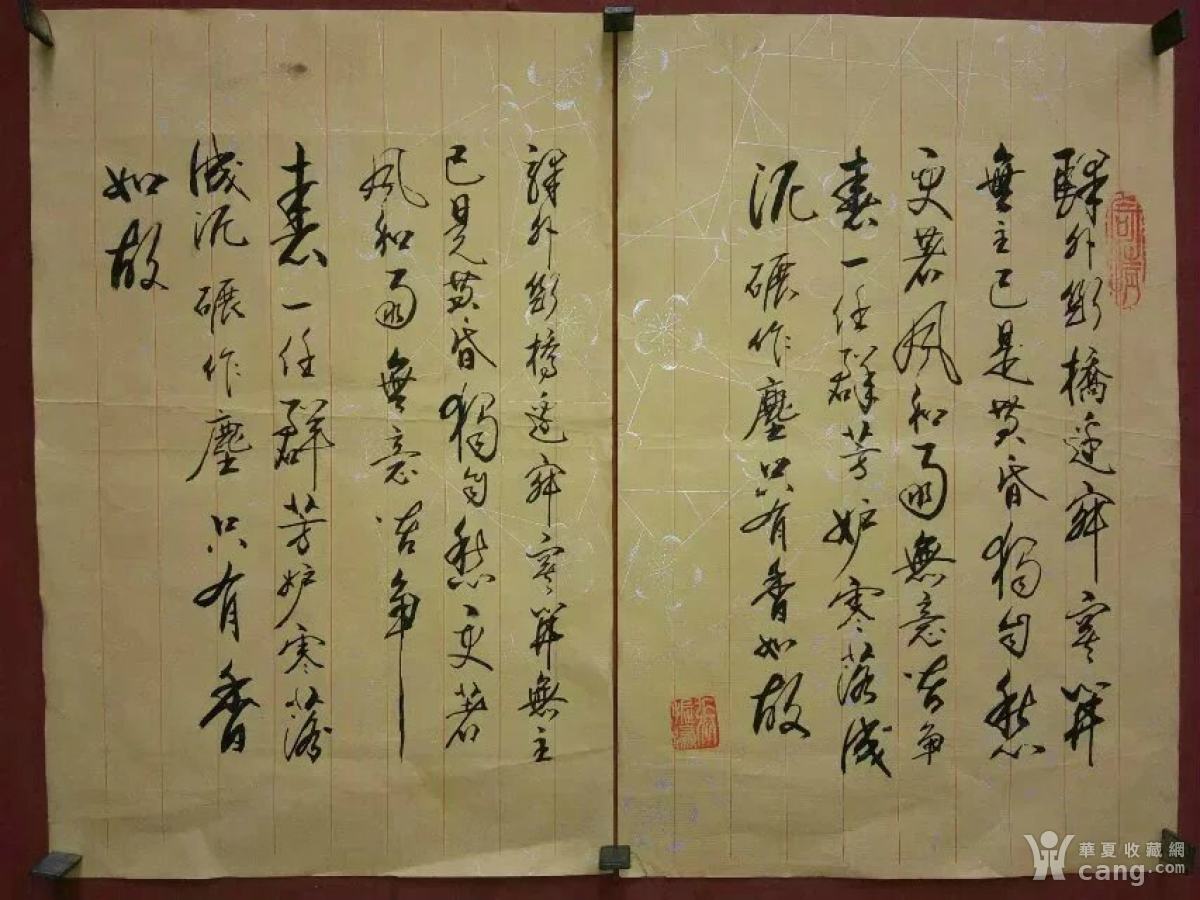 驛外斷橋邊寂寞開
無主已是黃昏獨自愁
更著風和雨無意苦爭
春一任群芳妒零落成
泥碾作塵只有香如故
驛外斷橋邊寂寞開無主
已是黃昏獨自愁更著
風和雨無意苦爭
春一任群芳妒零落
成泥碾作塵只有香
如故
華夏收藏網
cang.com